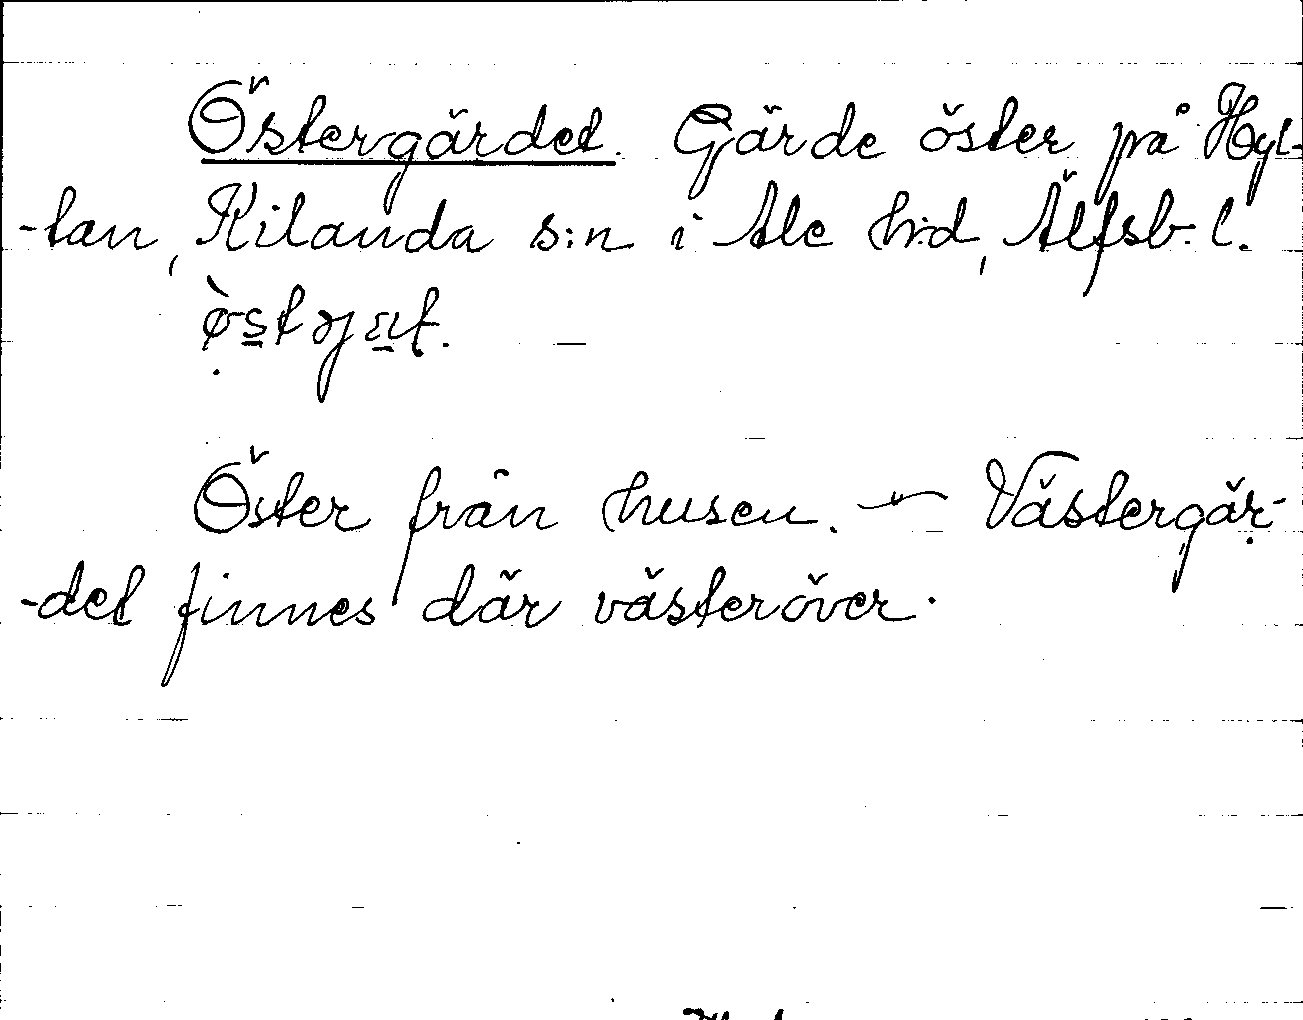 Östergärdet. Gärde öster på Hyl-
-tan, Kilanda s:n i Ale h:d, Älfsb. l.
Öster från husen. — Västergär-
-det finnes där västeröver.